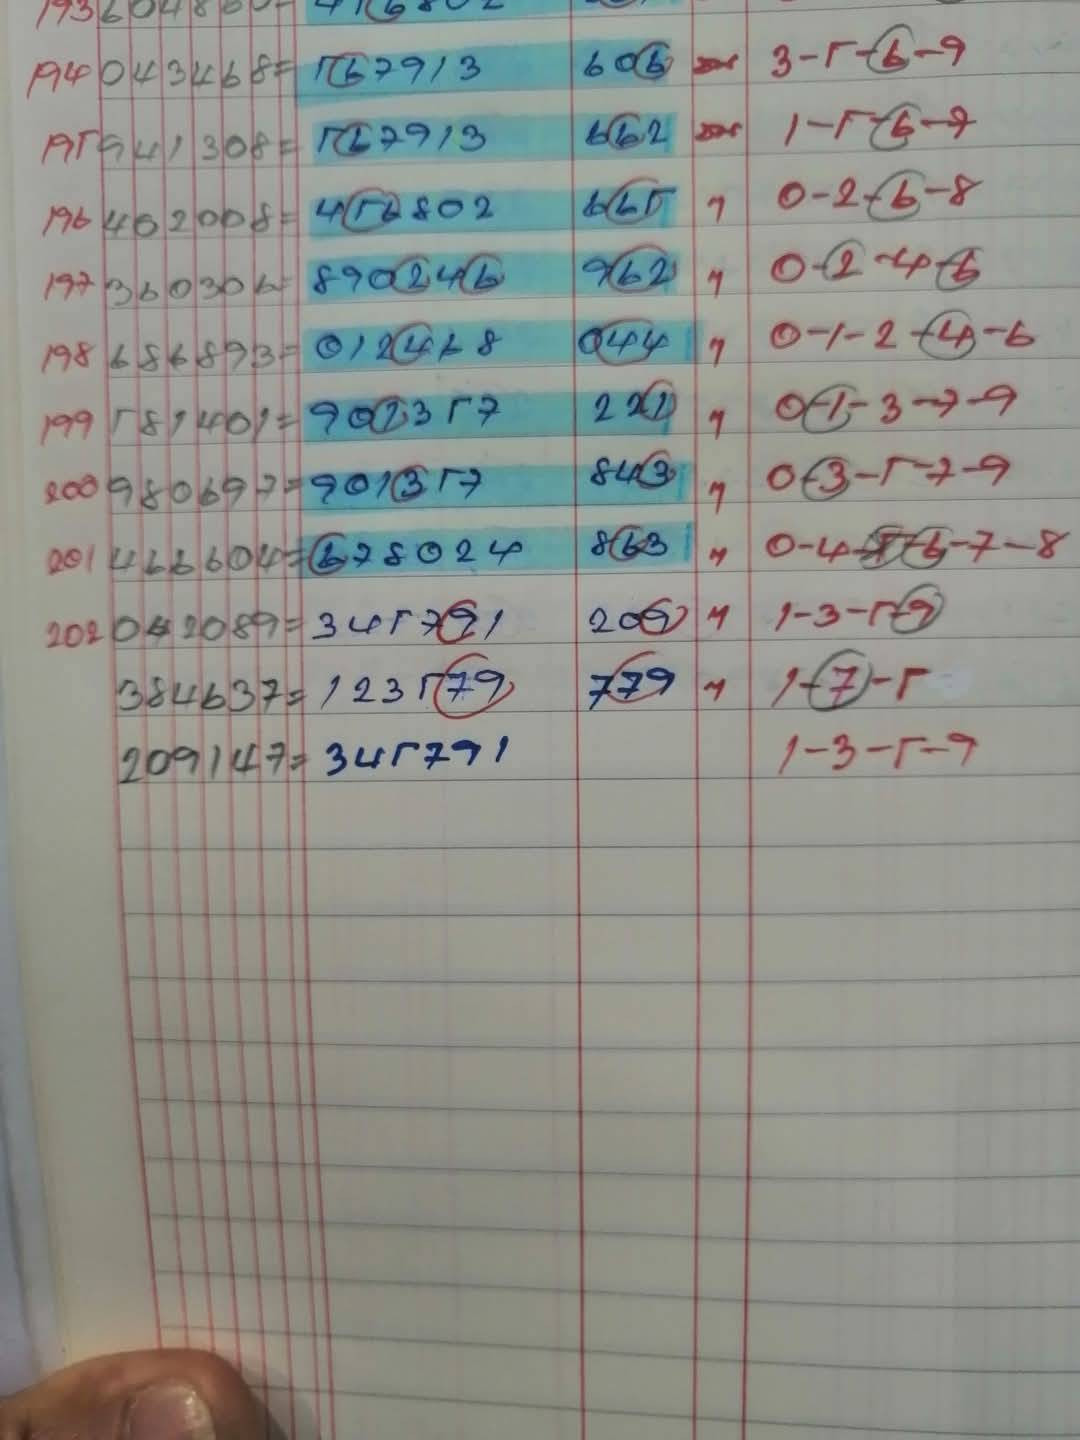 194 043468= 567913 606 3-5-6-9
195 941308= 567913 662 1-5-6-7
196 402008= 456802 665 " 0-2-6-8
197 360306= 890246 962 " 0-2-4-6
198 686893= 012468 044 " 0-1-2-4-6
199 581401= 901357 221 " 0-1-3-7-9
200 980697= 901357 843 " 0-3-5-7-9
201 466604= 678024 863 " 0-4-5-6-7-8
202 042089= 345791 209 " 1-3-5-9
384637= 123579 779 " 1-7-5
209147= 345791 1-3-5-9